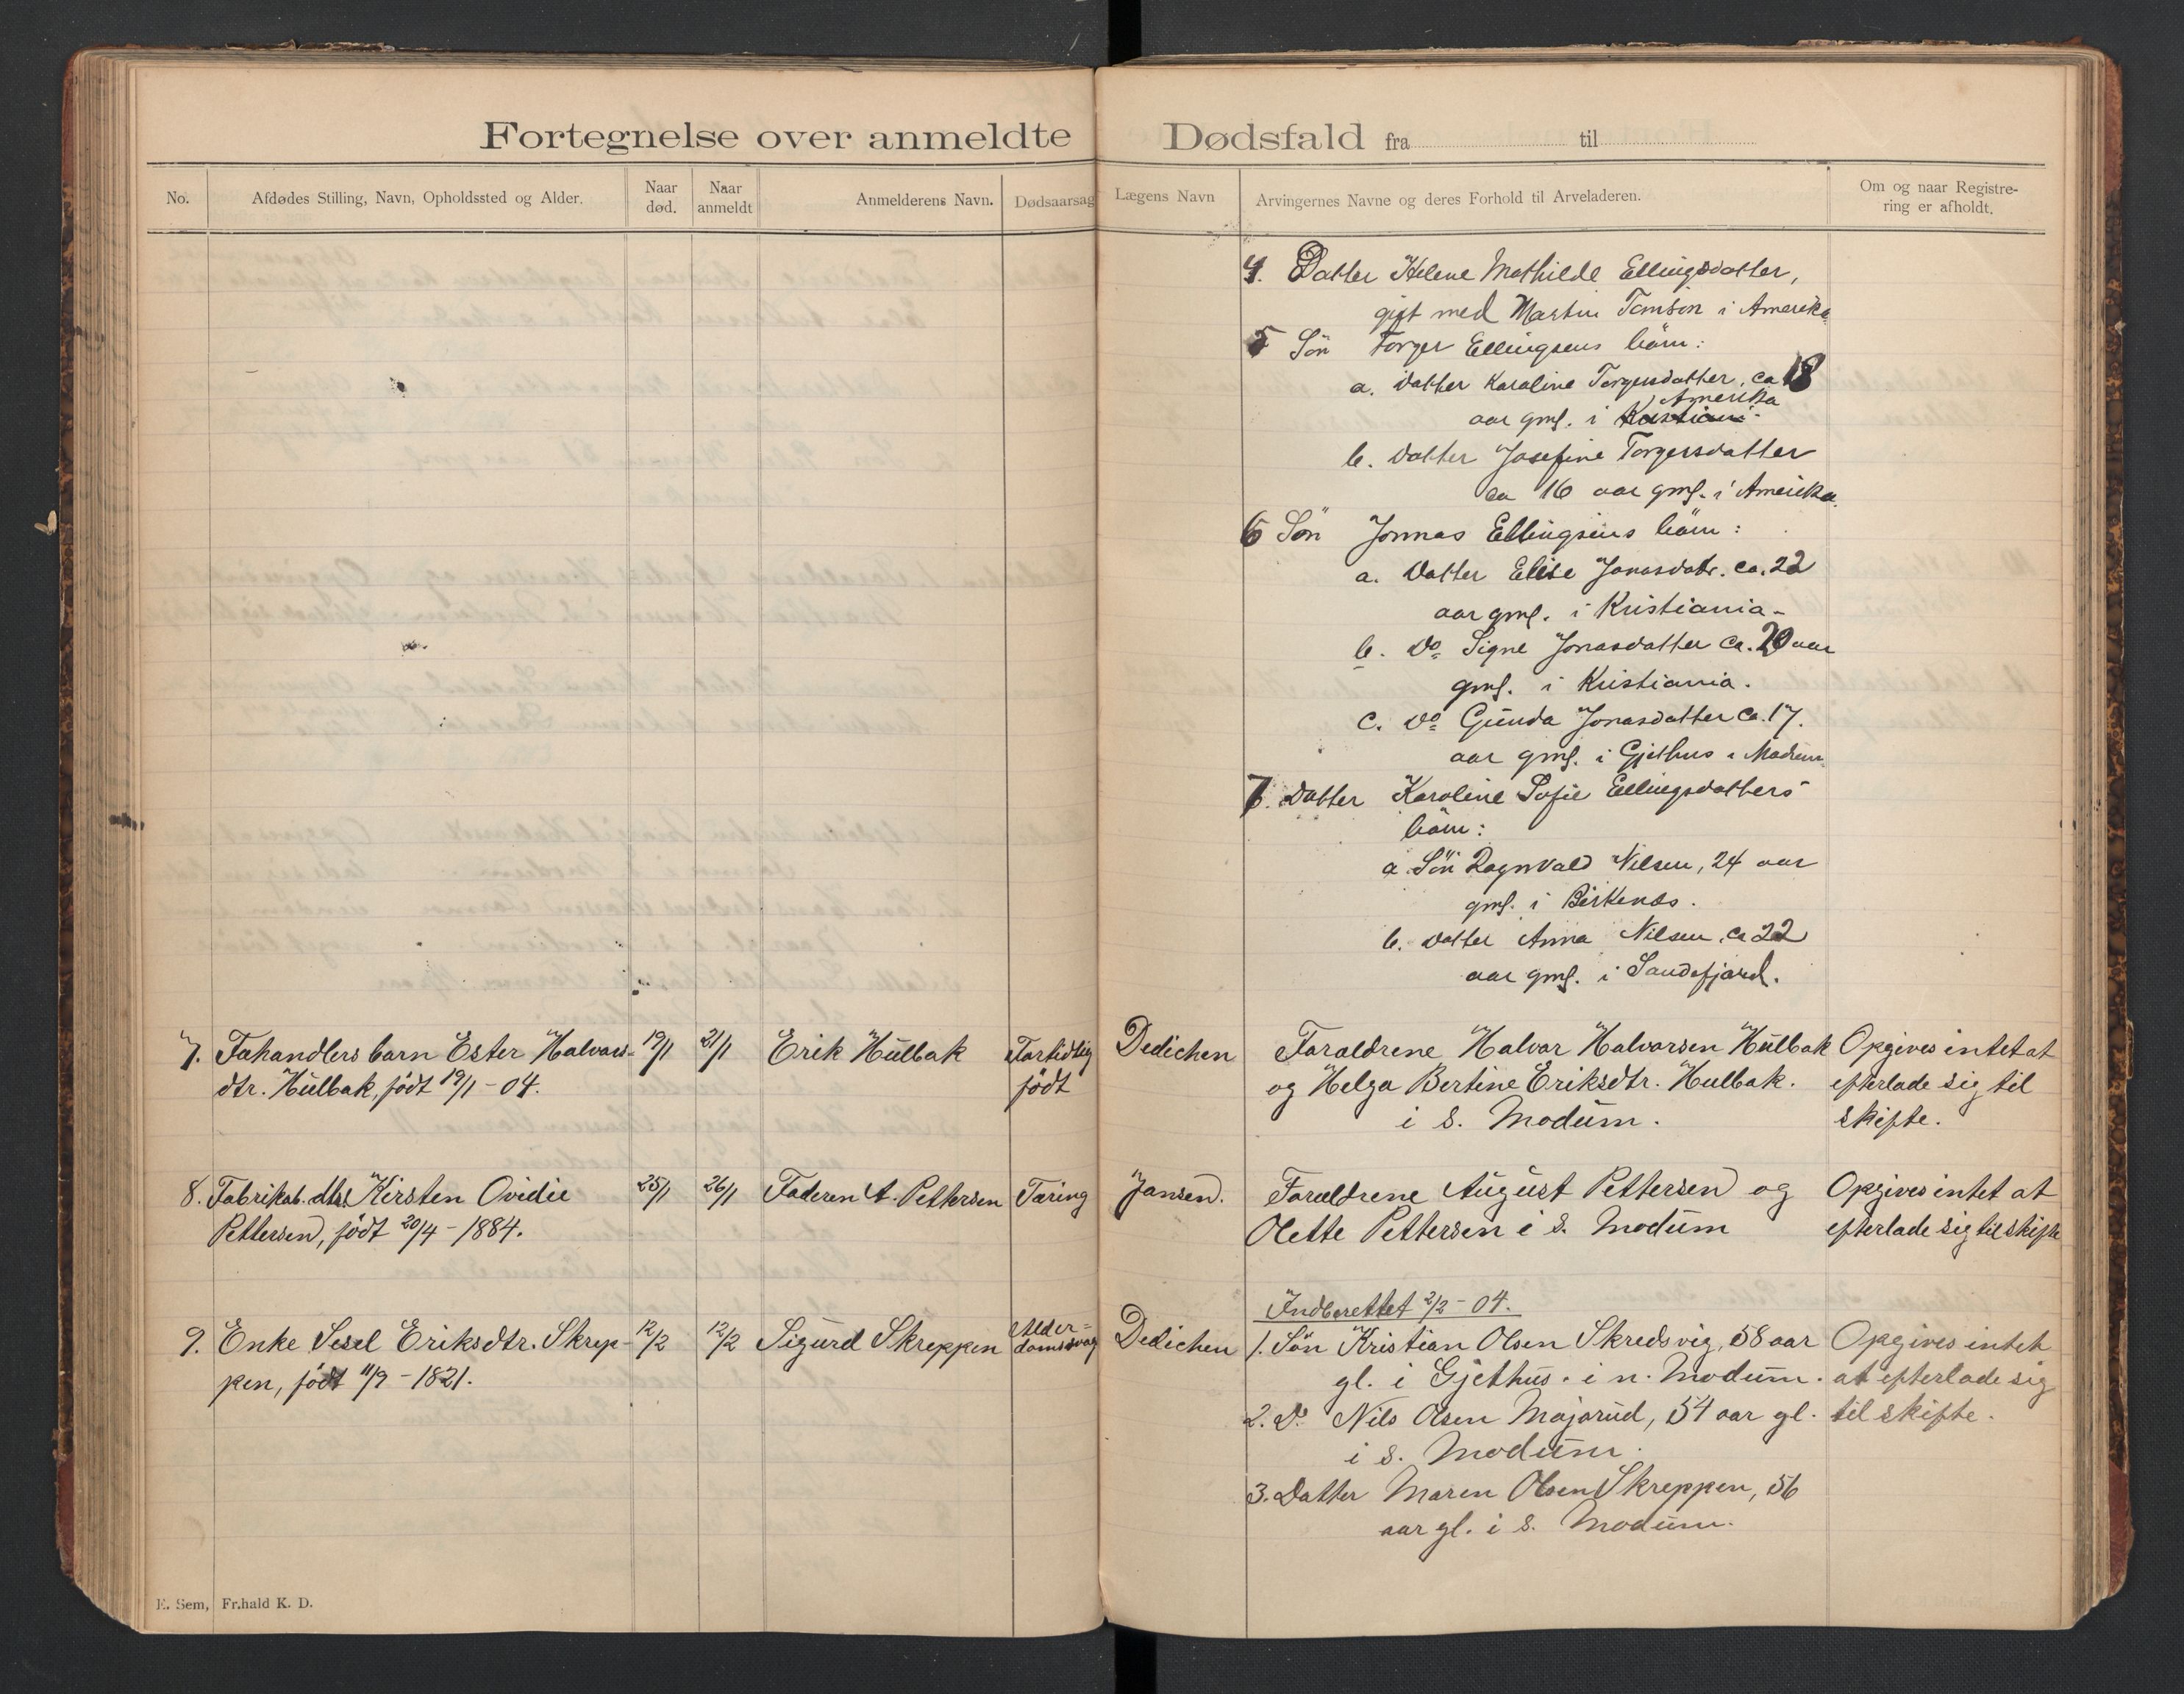 Fortegnelse over anmeldte Dødsfald fra til
No. Afdødes Stilling, Navn, Opholdssted og Alder. Naar død. Naar anmeldt Anmelderens Navn. Dødsaarsag Lægens Navn Arvingernes Navne og deres Forhold til Arveladeren. Om og naar Registrering er afholdt.
4. Datter Helene Mathilde Ellingsdatter,
gift med Martin Tomson i Amerika
5 Sön Torger Ellingsens börn:
a. Datter Karoline Torgersdatter, ca 18
Amerika
aar gml. i Kristiania.
b. Datter Josefine Torgersdatter
ca 16 aar gml. i Amerika.
6 Sön Jonnas Ellingsens börn:
a. Datter Elise Jonasdatr. ca. 22
aar gml. i Kristiania-
b. Do Signe Jonasdatter ca. 20 aar
gml. i Kristiania.
c. Do Gunda Jonasdatter ca. 17.
aar gml. i Gjethus i Modum
7. Datter Karoline Sofie Ellingsdatters
börn:
a. Sön Ragnvald Nilsen, 24 aar
gml. i Birkenæs.
b. Datter Anna Nilsen, ca 22
aar gml. i Sandefjord.
7. Fæhandlers barn Ester Halvors- 19/1 21/1 Erik Hulbak Fortidlig Dedichen Forældrene Halvor Halvorsen Hulbak Opgives intet at
dtr. Hulbak, født 19/1-04. født og Helga Bertine Eriksdtr. Hulbak. efterlade sig til
i s. Modum. skifte.
8. Fabrikab. dtr. Kirsten Ovidie 25/1 26/1 Faderen A. Pettersen Tæring Jansen. Forældrene August Pettersen og Opgives intet at
Pettersen, født 20/4-1884. Olette Pettersen i s. Modum efterlade sig til skifte
Indberettet 2/2-04.
9. Enke Sesel Eriksdtr. Skrep- 12/2 12/2 Sigurd Skreppen Alder= Dedichen 1. Søn Kristian Olsen Skredsvig, 58 aar Opgives intet
domssvag
pen, født 11/9-1821. gl. i Gjethus. i n. Modum. at efterlade sig
2. Do Nils Olsen Majorud, 54 aar gl. til skifte.
i s. Modum.
3. Datter Maren Olsen Skreppen, 56
aar gl. i s. Modum.
E. Sem, Fr.hald K. D.